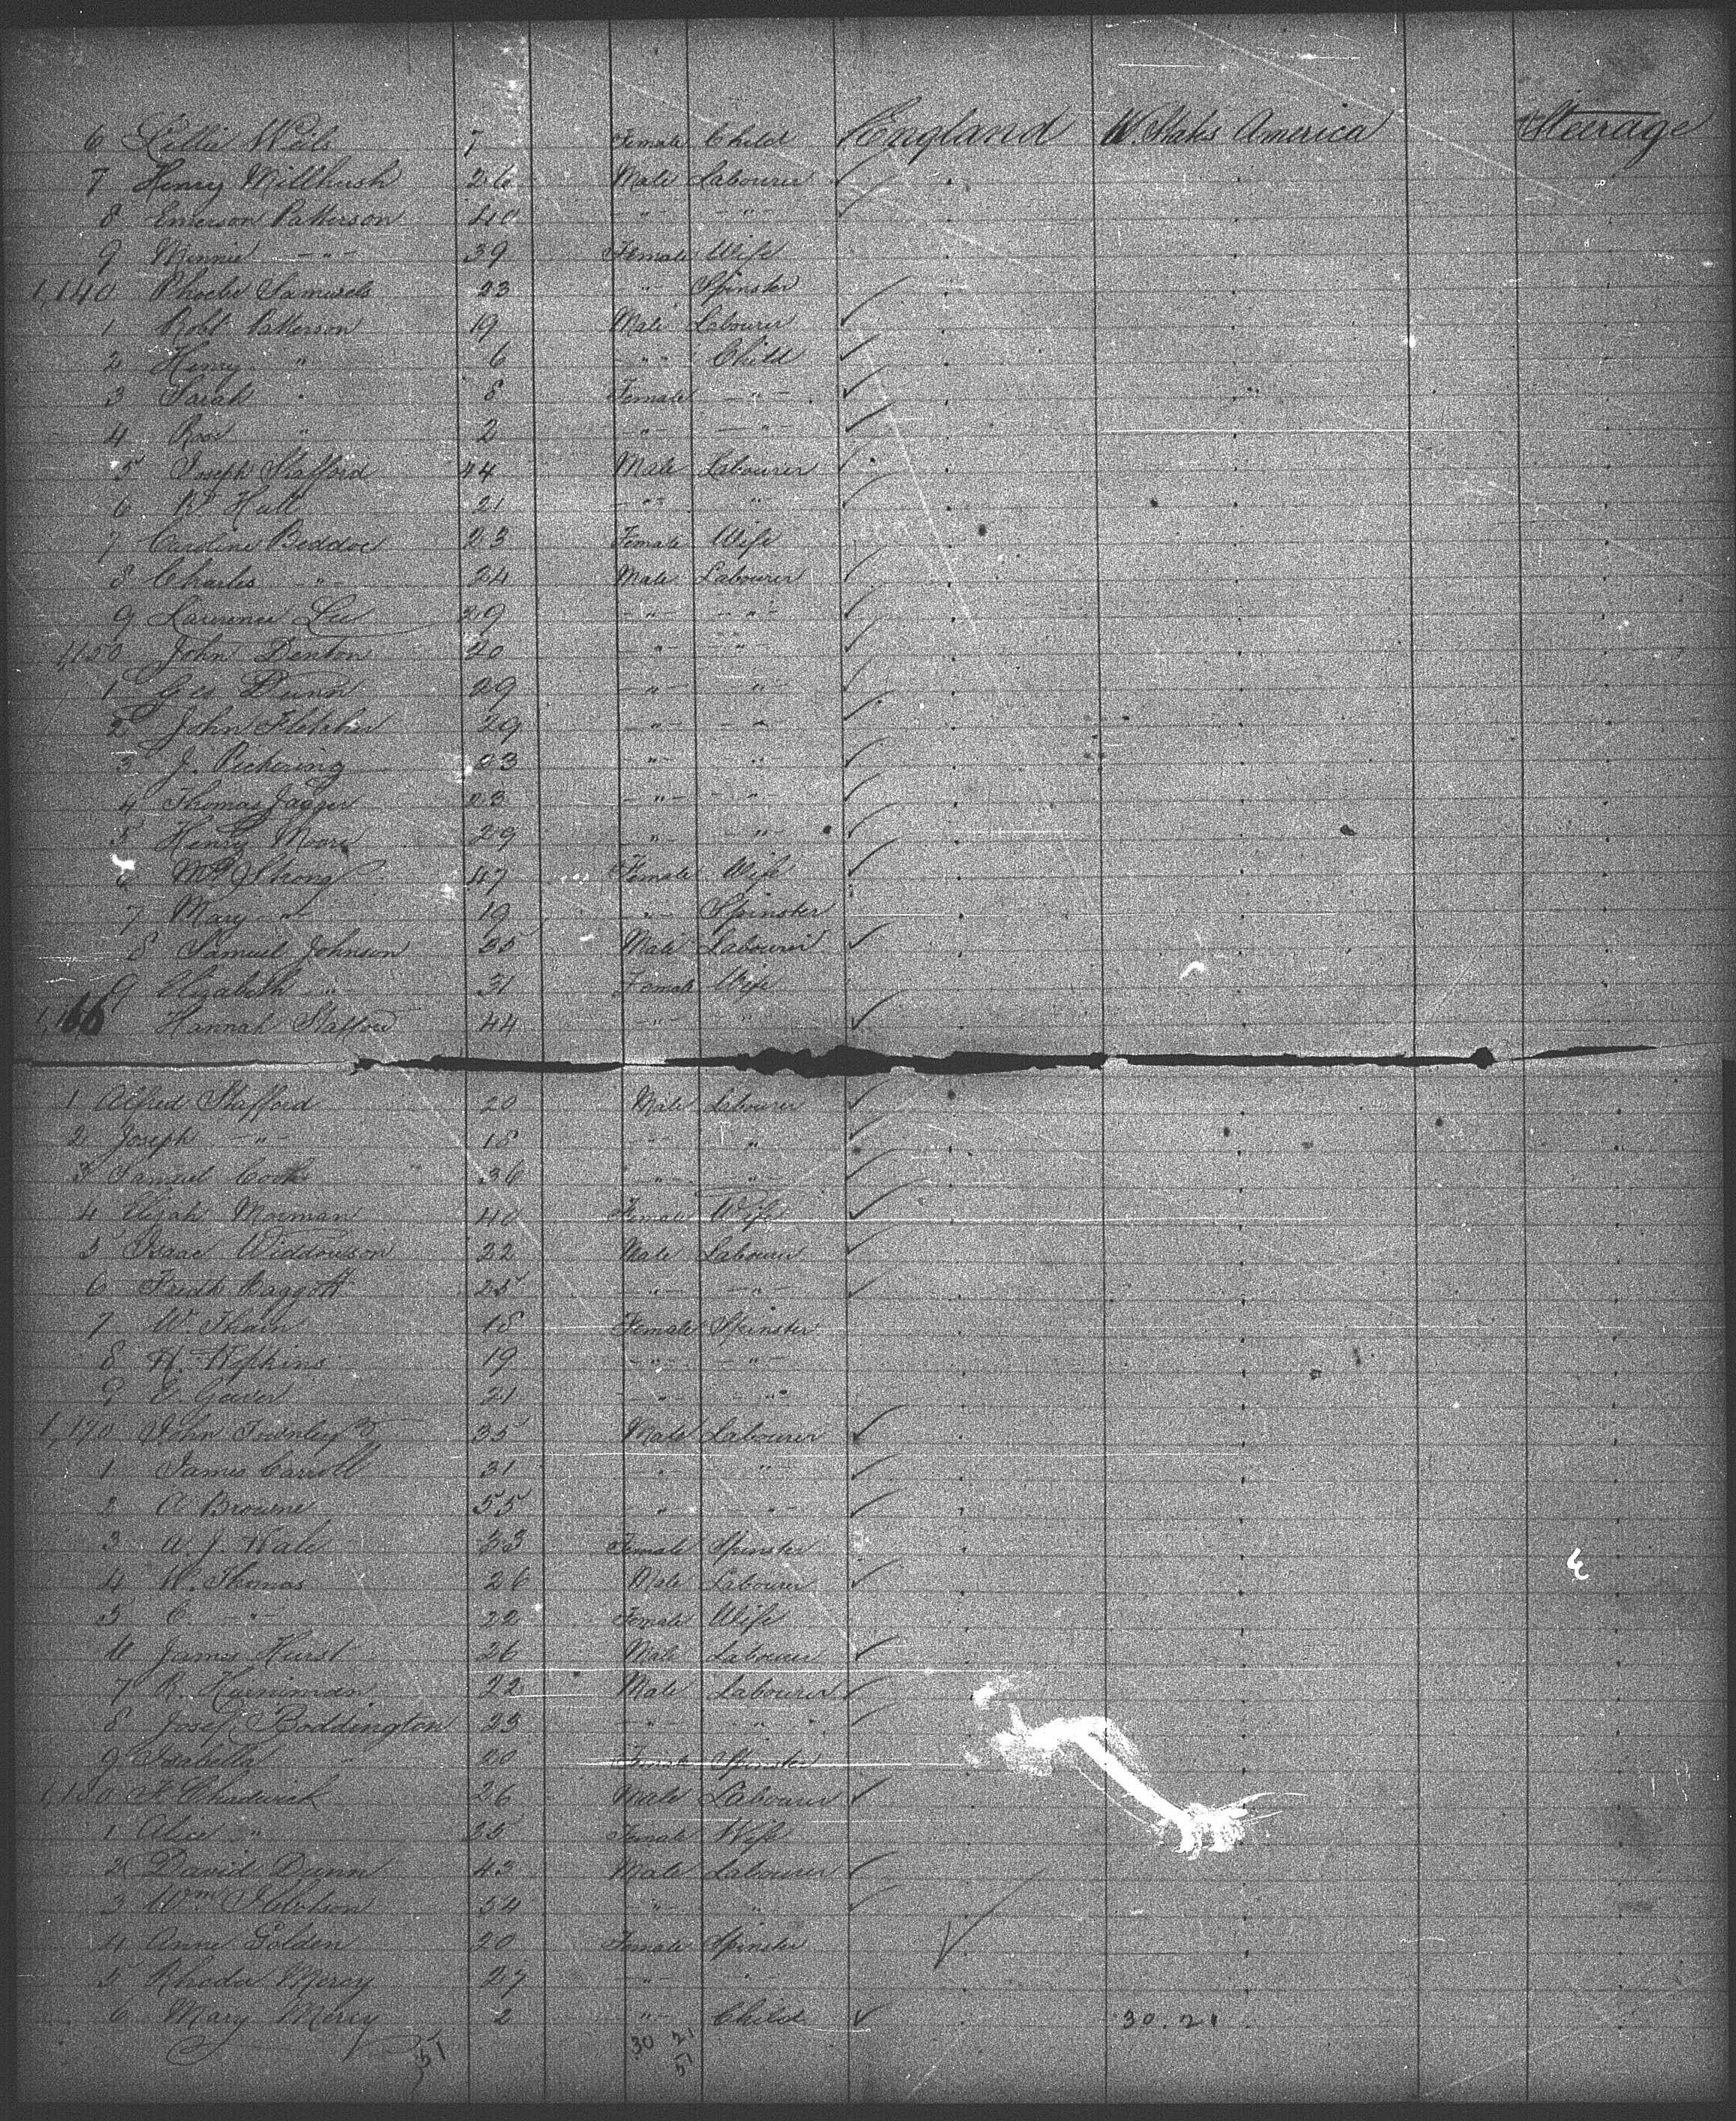 6 Lillie Weils 7 Female Child England U. States America Steerage
7 Henry Millhush 26 Male Labourer
8 Emerson Patterson 40 " "
9 Minnie " 39 Female Wife
1,140 Phoebe Samuels 23 " Spinster
1 Robt Patterson 19 Male Labourer
2 Henry " 6 " Child
3 Sarah " 8 Female "
4 Rose " 2 " "
5 Joseph Stafford 44 Male Labourer
6 Rd Hall 21 " "
7 Caroline Beddoe 23 Female Wife
8 Charles " 24 Male Labourer
9 Laurence Lee 29 " "
1,150 John Denton 20 " "
1 Geo Dunn 29 " "
2 John Fletcher 29 " "
3 J. Pickering 23 " "
4 Thomas Jagger 23 " "
5 Henry Moore 29 " "
6 Strong 47 Female Wife
7 Mary " 19 " Spinster
8 Samuel Johnson 35 Male Labourer
9 Elizabeth " 31 Female Wife
1,166 Hannah Stafford 44 " "
1 Alfred Stafford 20 Male Labourer
2 Joseph " 18 " "
3 Samuel Cooth 36 " "
4 Elijah Morman 40 Female Wife
5 Isaac Widdowson 22 Male Labourer
6 Fredk Baggott 25 " "
7 W. Thain 18 Female Spinster
8 H. Hopkins 19 " "
9 E. Gower 21 " "
1,170 John Townley 35 Male Labourer
1 James Carroll 31 " "
2 C. Browne 55 " "
3 W. J. Hale 33 Female Spinster
4 W. Thomas 26 Male Labourer
5 C. " 22 Female Wife
6 James Hurst 26 Male Labourer
7 R. Harniman 22 Male Labourer
8 Josef Boddington 23 " "
9 Isabella " 20 Female Spinster
1,180 F. Chadwick 26 Male Labourer
1 Alice " 25 Female Wife
2 David Dunn 43 Male Labourer
3 Wm Ibbotson 54 " "
4 Anne Golden 20 Female Spinster
5 Rhoda Mercy 27 " "
6 Mary Mercy 2 " Child 30.21
51 30 21
51